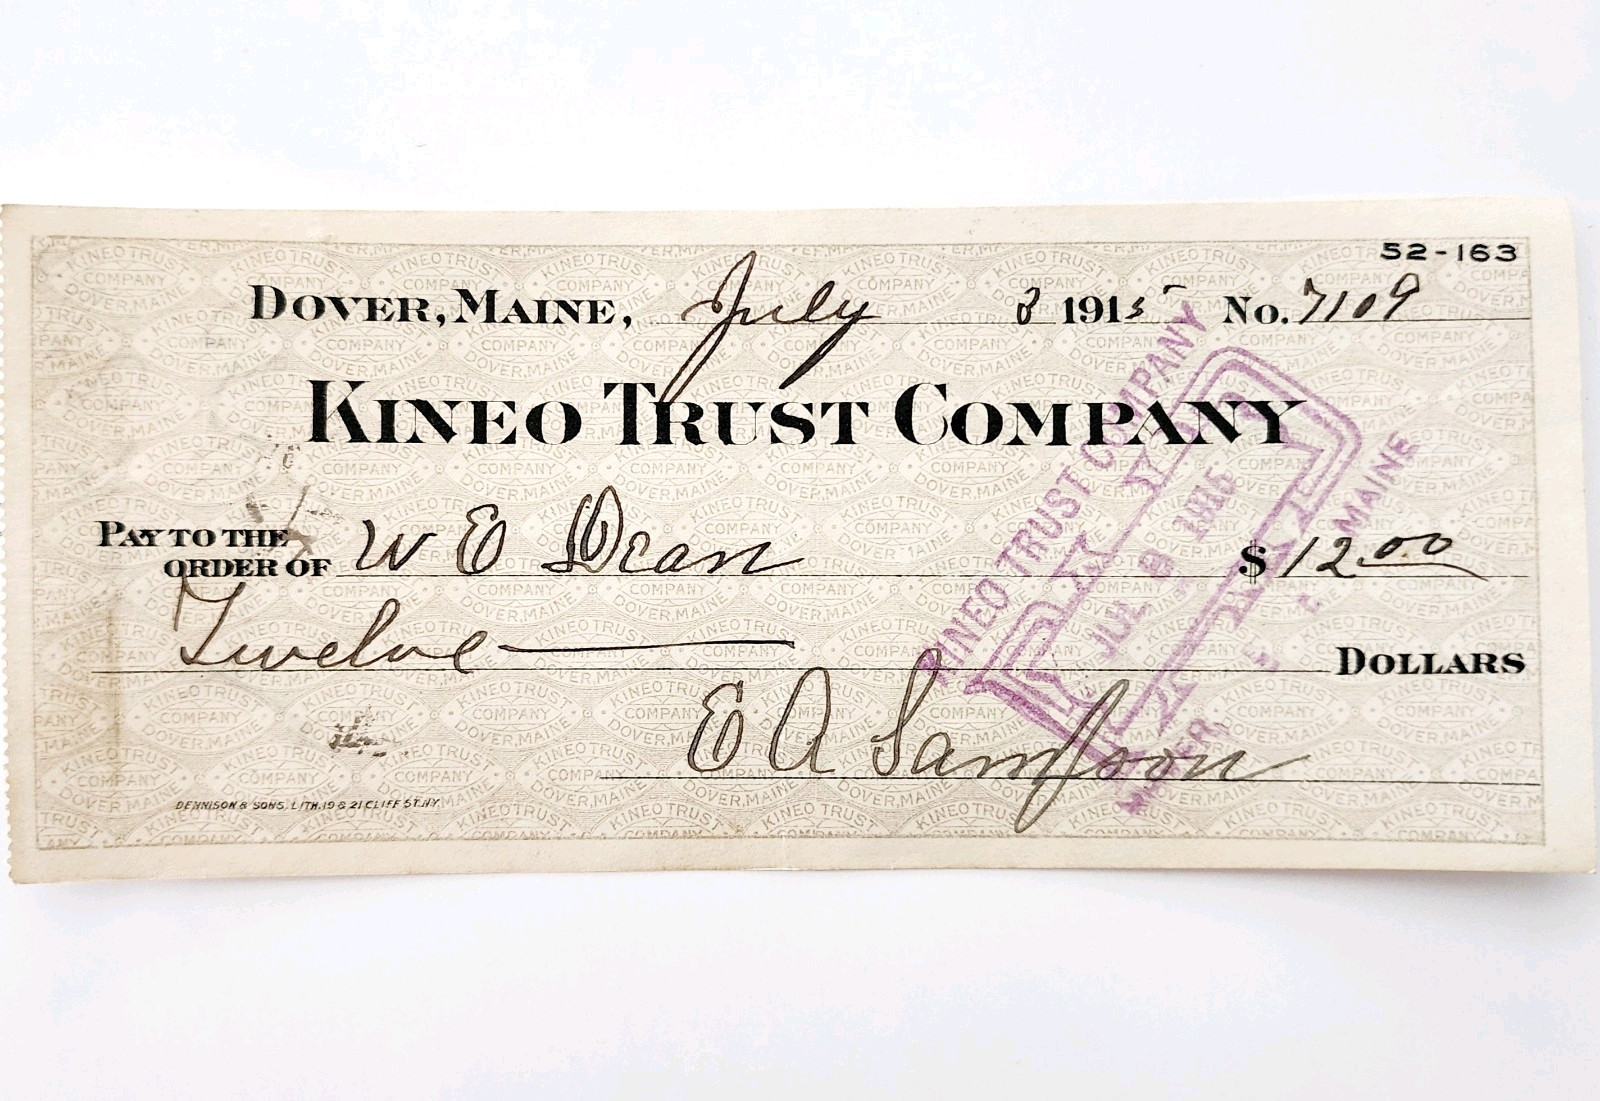 52-163
DOVER, MAINE, July 8 1915 No. 7109
KINEO TRUST COMPANY
PAY TO THE
ORDER OF W E Dean $ 12.00
Twelve DOLLARS
E A Sampson
DENNISON & SONS. LITH. 19 & 21 CLIFF ST. N.Y.
KINEO TRUST COMPANY
PAID
JUL 9 1915
MAINE